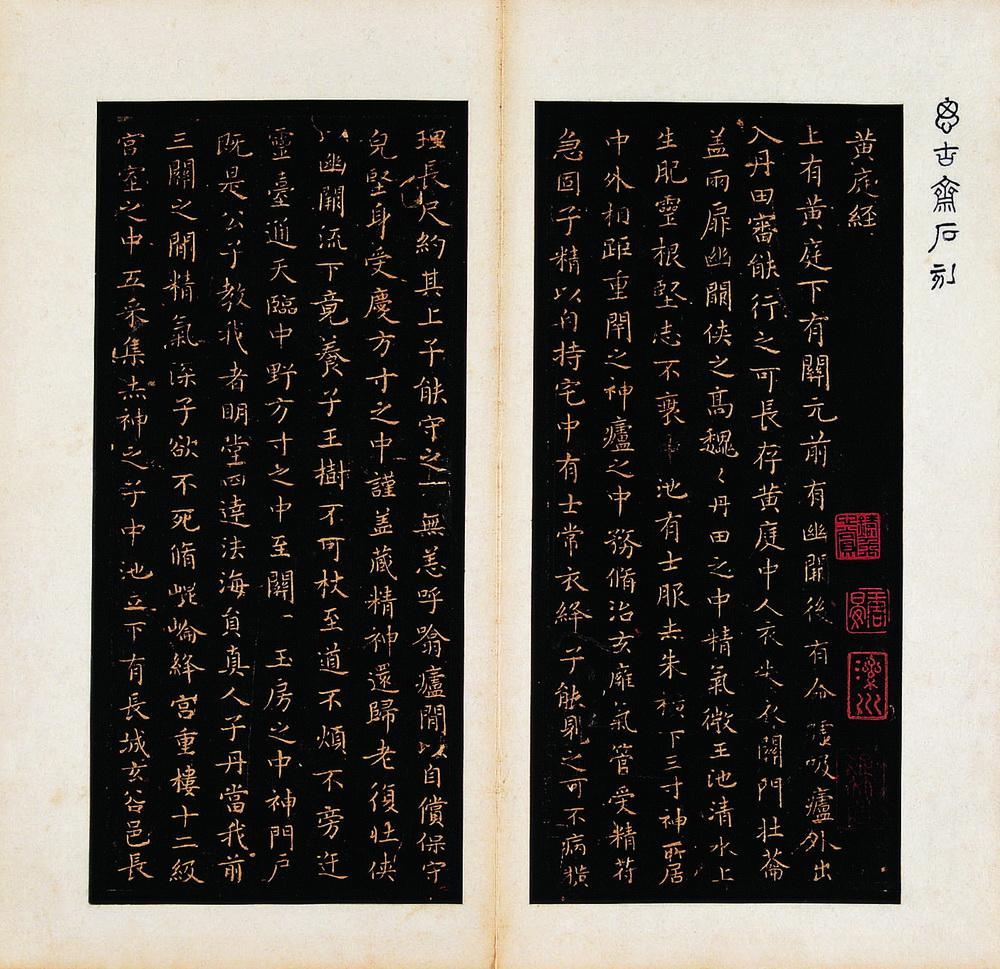 思古齋石刻
黃庭經
上有黃庭下有關元前有幽闕後有命噓吸廬外出
入丹田審能行之可長存黃庭中人衣朱衣關門壯蘥
蓋兩扉幽闕俠之高魏〻丹田之中精氣微玉池清水上
生肥靈根堅志不衰中池有士服赤朱橫下三寸神所居
中外相距重閇之神廬之中務脩治玄㢗氣管受精符
急固子精以自持宅中有士常衣絳子能見之可不病橫
理長尺約其上子能守之無恙呼噏廬間以自償保守
皃堅身受慶方寸之中謹蓋藏精神還歸老復壯俠
以幽闕流下竟養子玉樹不可杖至道不煩不旁迕
靈臺通天臨中野方寸之中至關下玉房之中神門戶
既是公子教我者明堂四達法海員真人子丹當我前
三關之間精氣深子欲不死脩崐崘絳宮重樓十二級
宮室之中五采集赤神之子中池立下有長城玄谷邑長